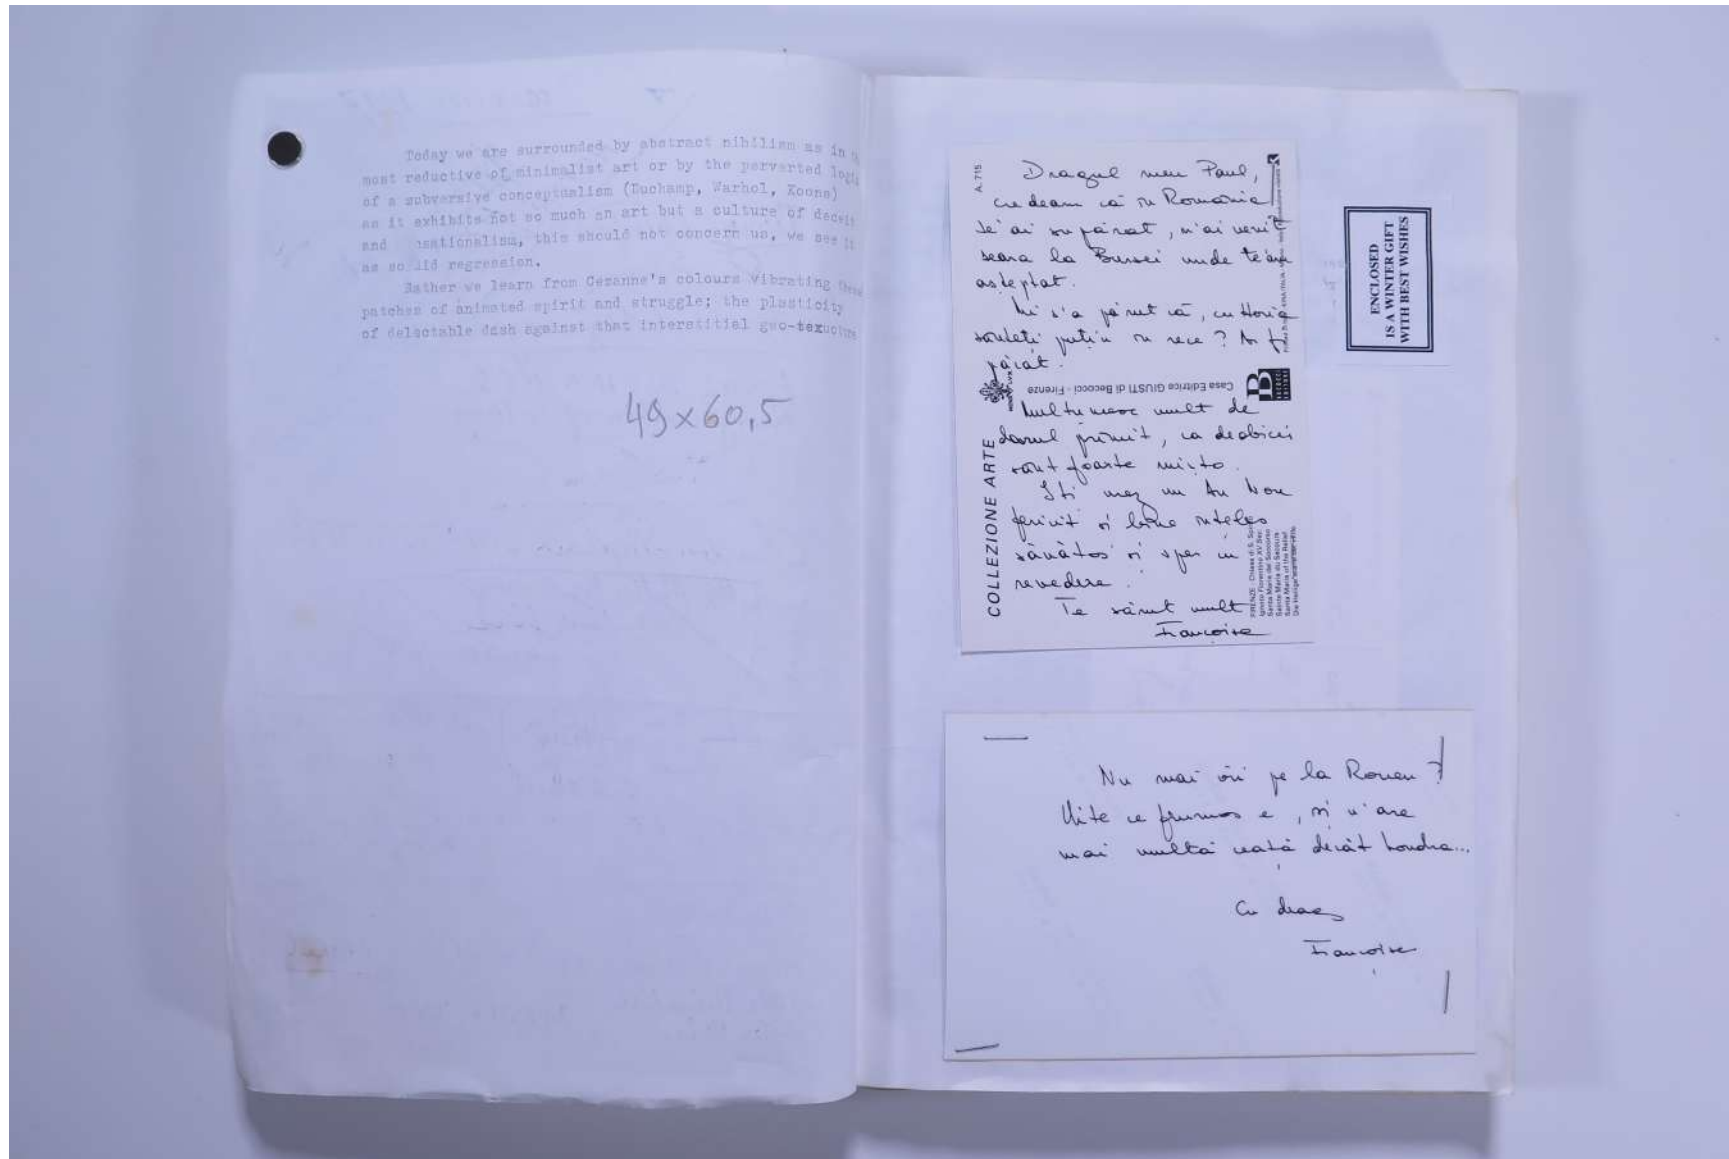 Today we are surrounded by abstract nihilism as in
most reductive of minimalist art or by the perverted logic
of a subversive conceptualism (Duchamp, Warhol, Koons)
as it exhibits not so much an art but a culture of deceit
and sationalism, this should not concern us, we see
as so lid regression.
Rather we learn from Cezanne's colours vibrating
patches of animated spirit and struggle; the plasticity
of delectable dash against that interstitial geo-texucture
49 x 60,5
A. 715
Dragul meu Paul,
credeam că în Romania
te ai supărat, n'ai venit
seara la Bursei unde te-am
asteptat.
Mi s'a părut că, cu Horia
sunteti putin în rece?
părat.
Casa Editrice GIUSTI di Becocci - Firenze
Multumesc mult de
darul primit, ca deobicei
sânt foarte misto.
Iti urez un An Nou
fericit si bine inteles
sănătos si sper in
revedere.
Te sărut mult
Françoise
COLLEZIONE ARTE
FIRENZE - Chiesa di S.
Ignoto Fiorentino XV Sec.
Santa Maria del Soccorso
Sainte Marie du Secours
Santa Maria of the Relief
ENCLOSED
IS A WINTER GIFT
WITH BEST WISHES
Nu mai vii pe la Rouen?
Uite ce frumos e, si n'are
mai multă ceată decât Londra...
Cu drag
Françoise